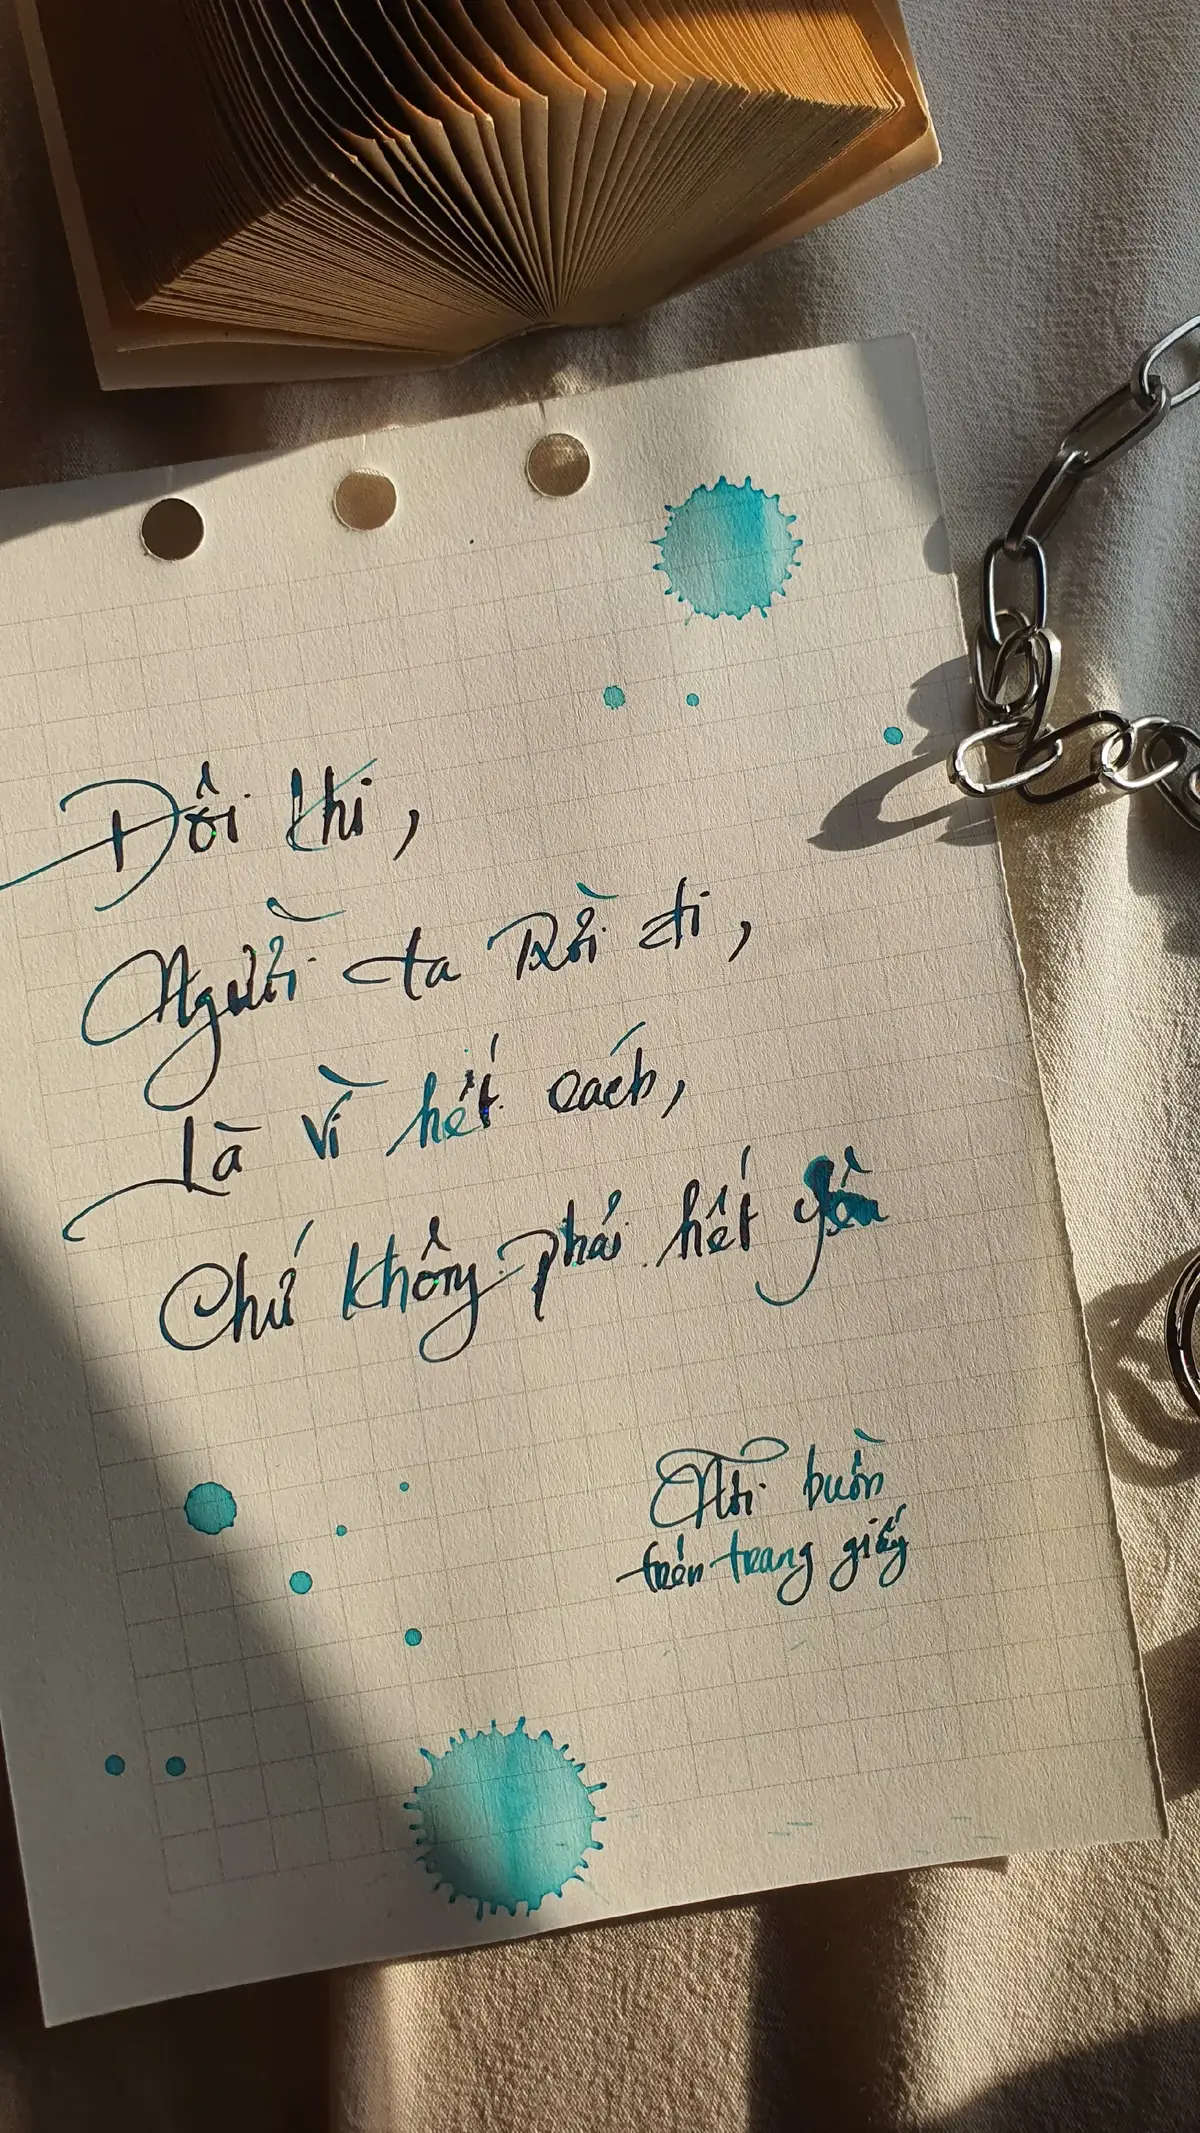 Đôi khi,
Người ta Rời đi,
Là vì hết cách,
Chứ không phải hết yêu
Nỗi buồn
trên trang giấy